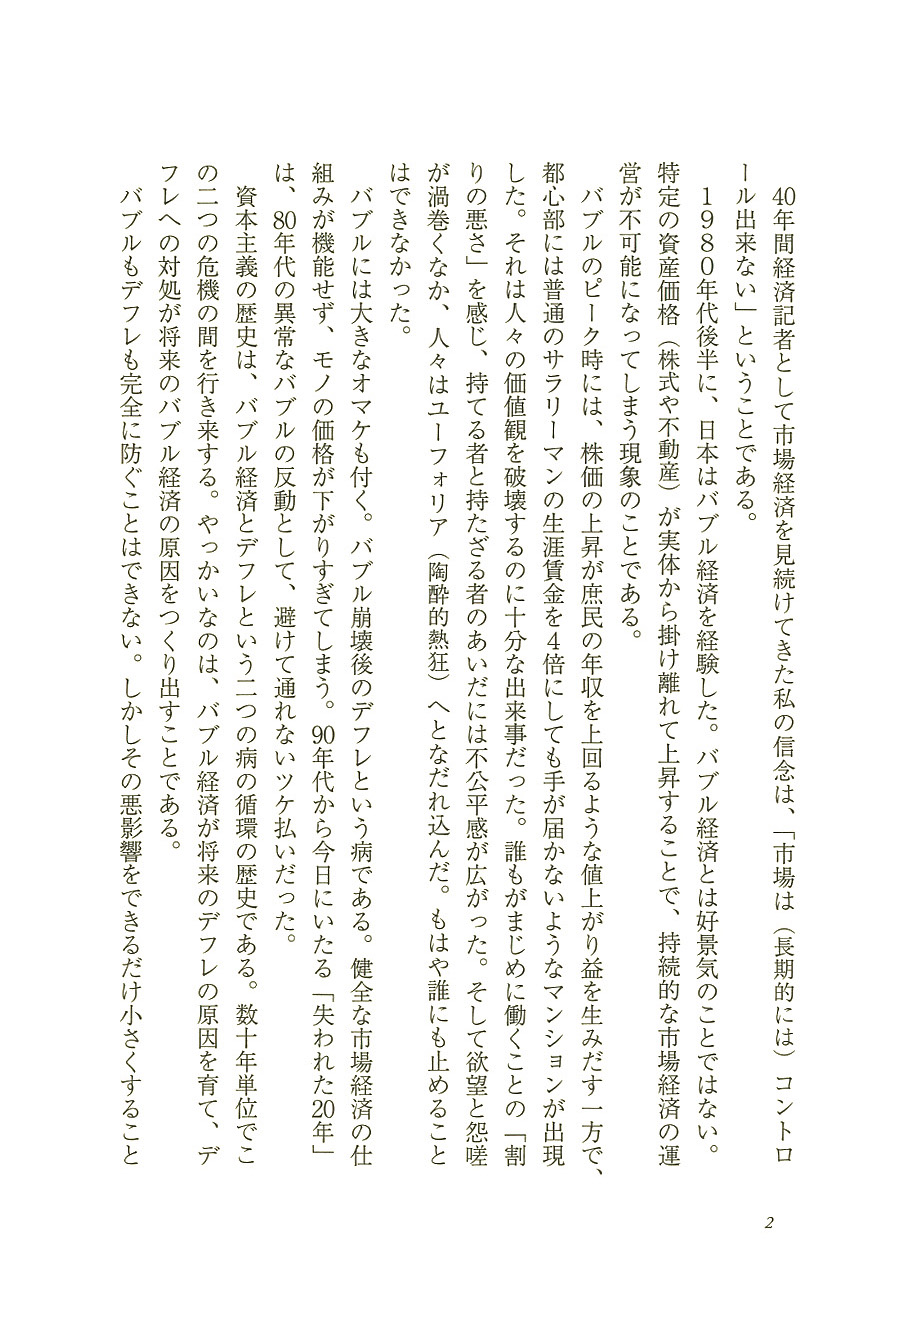 40年間経済記者として市場経済を見続けてきた私の信念は、「市場は（長期的には）コントロ
ール出来ない」ということである。
　１９８０年代後半に、日本はバブル経済を経験した。バブル経済とは好景気のことではない。
特定の資産価格（株式や不動産）が実体から掛け離れて上昇することで、持続的な市場経済の運
営が不可能になってしまう現象のことである。
　バブルのピーク時には、株価の上昇が庶民の年収を上回るような値上がり益を生みだす一方で、
都心部には普通のサラリーマンの生涯賃金を４倍にしても手が届かないようなマンションが出現
した。それは人々の価値観を破壊するのに十分な出来事だった。誰もがまじめに働くことの「割
りの悪さ」を感じ、持てる者と持たざる者のあいだには不公平感が広がった。そして欲望と怨嗟
が渦巻くなか、人々はユーフォリア（陶酔的熱狂）へとなだれ込んだ。もはや誰にも止めること
はできなかった。
　バブルには大きなオマケも付く。バブル崩壊後のデフレという病である。健全な市場経済の仕
組みが機能せず、モノの価格が下がりすぎてしまう。90年代から今日にいたる「失われた20年」
は、80年代の異常なバブルの反動として、避けて通れないツケ払いだった。
　資本主義の歴史は、バブル経済とデフレという二つの病の循環の歴史である。数十年単位でこ
の二つの危機の間を行き来する。やっかいなのは、バブル経済が将来のデフレの原因を育て、デ
フレへの対処が将来のバブル経済の原因をつくり出すことである。
　バブルもデフレも完全に防ぐことはできない。しかしその悪影響をできるだけ小さくすること
2